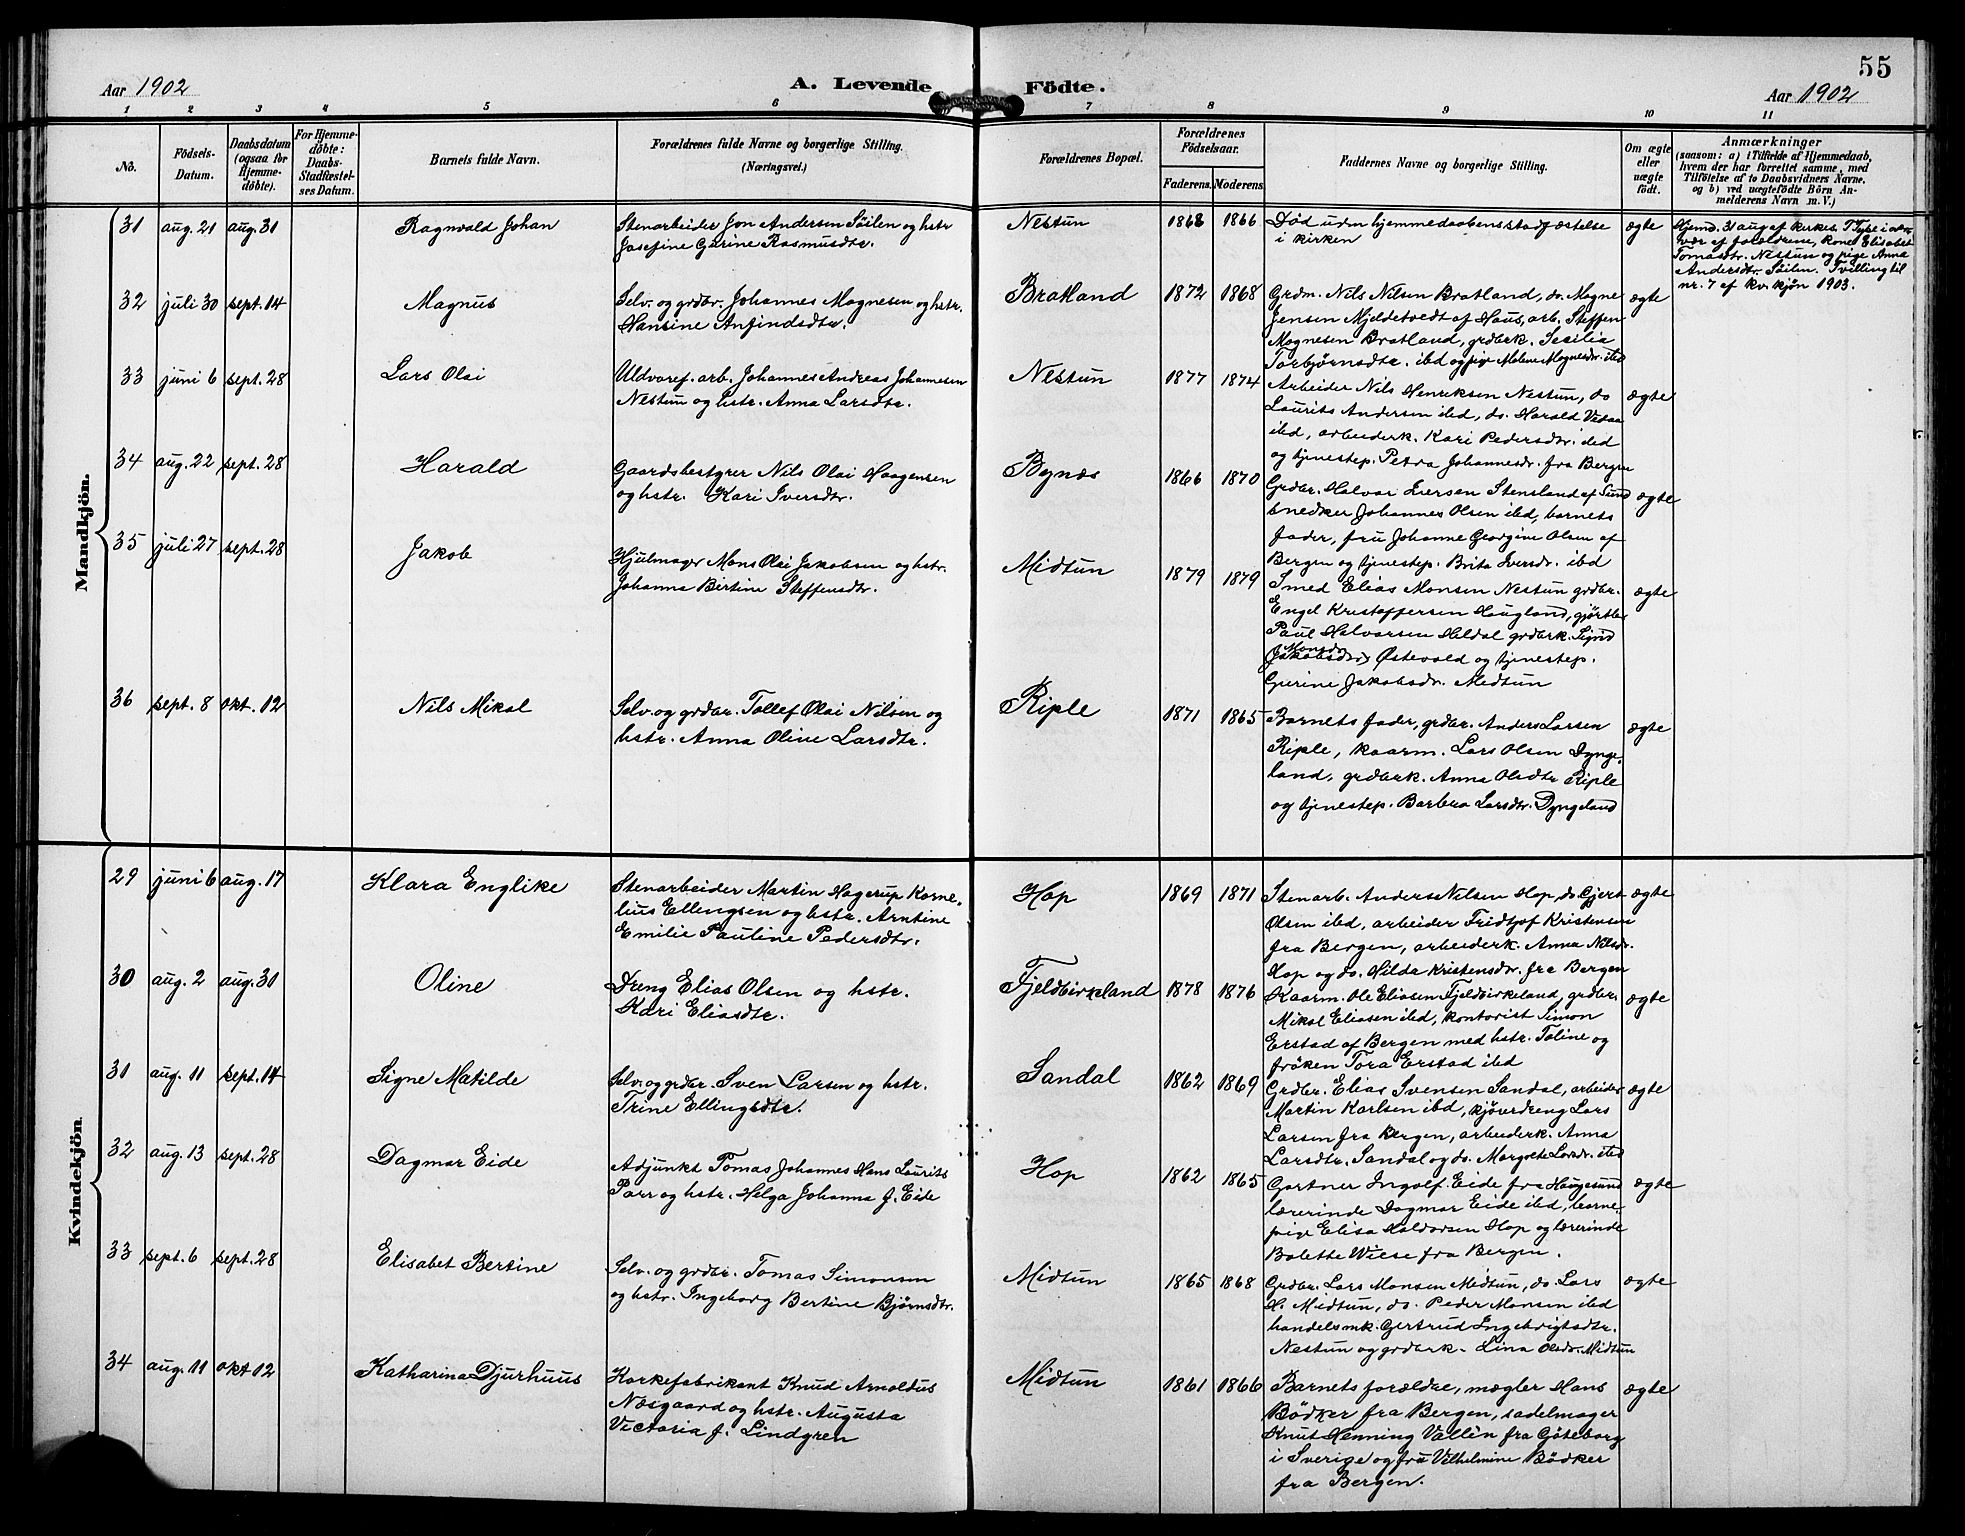 55
Aar 1902
A. Levende Födte.
Aar 1902
1 2 3 4 5 6 7 8 9 10 11
No.
Födsels-
Datum.
Daabsdatum
(ogsaa for
Hjemme-
döbte).
For Hjemme-
döbte:
Daabs-
Stadfæstel-
ses Datum.
Barnets fulde Navn.
Forældrenes fulde Navne og borgerlige Stilling.
(Næringsvei.)
Forældrenes Bopæl.
Forældrenes
Födselsaar.
Faderens. Moderens.
Faddernes Navne og borgerlige Stilling.
Om ægte
eller
uægte
födt.
Anmærkninger
(saasom: a) i Tilfælde af Hjemmedaab,
hvem der har forrettet samme, med
Tilföielse af to Daabsvidners Navne,
og b) ved uægtefödte Börn An-
melderens Navn m. V.)
Mandkjön.
31 aug. 21 aug. 31 Ragnvald Johan
Stenarbeider Jon Andersen Søilen og hstr
Josefine Gurine Rasmusdtr.
Nestun 1868 1866
Død uden hjemmedaabens stadfæstelse
i kirken
ægte
Hjemd. 31 aug af kirkes. T Tyse i nær-
vær af forældrene, kone Elisabet
Tomasdtr. Nestun og pige Anna
Andersdtr. Søilen. Tvilling til
nr. 7 af kv. kjøn 1903.
32 juli 30 sept. 14 Magnus
Selv. og grdbr. Johannes Magnesen og hstr.
Hansine Anfindsdtr.
Bratland 1872 1868
Grdm. Nils Nilsen Bratland, do. Magne
Jensen Mjeldetvedt af Haus, arb. Steffen
Magnesen Bratland, grdbrk. Sesilia
Torbjørnsdtr. ibd og pige Malene Magnesdr. ibd
ægte
33 juni 6 sept. 28 Lars Olai
Uldvaref. arb. Johannes Andreas Johannesen
Nestun og hstr. Anna Larsdtr.
Nestun 1877 1874
Arbeider Nils Henriksen Nestun, do
Laurits Andersen ibd, do. Harald Vedaa
ibd, arbeiderk. Kari Pedersdtr. ibd
og tjenestep. Petra Johannesdr. fra Bergen
ægte
34 aug. 22 sept. 28 Harald
Gaardsbestyrer Nils Olai Haagensen
og hstr. Kari Iversdtr.
Bynæs 1866 1870
Grdbr. Halvar Iversen Stensland af Sund
snedker Johannes Olsen ibd, barnets
fader, fru Johanne Georgine Olsen af
Bergen og tjenestep. Brita Iversdr. ibd
ægte
35 juli 27 sept. 28 Jakob
Hjulmager Mons Olai Jakobsen og hstr.
Johanna Bertine Steffensdtr.
Midtun 1879 1879
Smed Elias Monsen Nestun grdbr.
Engel Kristoffersen Haugland, gjørtler
Paul Halvarsen Hildal grdbrk. Signe
Monsdr
Jakobsdtr Østevold og tjenestep.
Gurine Jakobsdr. Midtun
ægte
36 sept. 8 okt. 12 Nils Mikal
Selv. og grdbr. Tollef Olai Nilsen og
hstr. Anna Oline Larsdtr.
Riple 1871 1865
Barnets fader, grdbr. Anders Larsen
Riple, kaarm. Lars Olsen Dynge-
land, grdbrk. Anna Olsdtr Riple
og tjenestep. Barbra Larsdtr. Dyngeland
ægte
Kvindekjön.
29 juni 6 aug. 17 Klara Englike
Stenarbeider Martin Hagerup Korne-
lius Ellingsen og hstr. Arntine
Emilie Pauline Pedersdtr.
Hop 1869 1871
Stenarb. Anders Nilsen Hop, do Gjert
Olsen ibd, arbeider Fridtjof Kristensen
fra Bergen, arbeiderk. Anna Nilsdr.
Hop og do. Hilda Kristensdr. fra Bergen
ægte
30 aug. 2 aug. 31 Oline
Dreng Elias Olsen og hstr.
Kari Eliasdtr.
Fjeldbirkeland 1878 1876
Kaarm. Ole Eliasen Fjeldbirkeland, grdbr.
Mikal Eliasen ibd, kontorist Simon
Erstad af Bergen med hstr. Toline og
frøken Tora Erstad ibd
ægte
31 aug. 11 sept. 14 Signe Matilde
Selv. og grdbr. Sven Larsen og hstr.
Trine Ellingsdtr.
Sandal 1862 1869
Grdbr. Elias Svensen Sandal, arbeider
Martin Karlsen ibd, kjøverdreng Lars
Larsen fra Bergen, arbeiderk. Anna
Larsdtr. Sandal og do. Margrete Larsdr. ibd
ægte
32 aug. 13 sept. 28 Dagmar Eide
Adjunkt Tomas Johannes Hans Laurits
Parr og hstr. Helga Johanna f. Eide
Hop 1862 1865
Gartner Ingolf Eide fra Haugesund
lærerinde Dagmar Eide ibd, barne-
pige Elisa Haldorsen Hop og lærerinde
Bolette Wiese fra Bergen.
ægte
33 sept. 6 sept. 28 Elisabet Bertine
Selv. og grdbr. Tomas Simonsen
og hstr. Ingeborg Bertine Bjørnsdtr.
Midtun 1865 1868
Grdbr. Lars Monsen Midtun, do. Lars
H. Midtun, do. Peder Monsen ibd
handelsmk. Gertrud Ingebrigtsdtr.
Nestun og grdbrk. Lina Olsdr. Midtun
ægte
34 aug. 11 okt 12 Katharina Djurhuus
Korkefabrikant Knud Arnoldus
Næsgaard og hstr. Augusta
Victoria f. Lindgren
Midtun 1861 1866
Barnets forældre, mægler Hans
Bödker fra Bergen, sadelmager
Knut Henning Vallin fra Göteborg
i Sverige og fru Vilhelmine Bödker
fra Bergen.
ægte